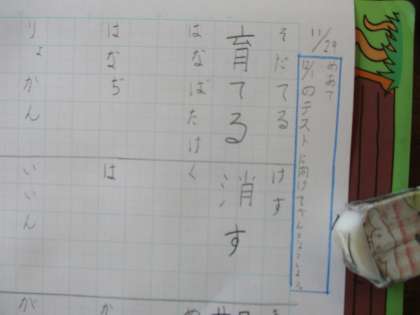 11/29
めあて
12/1のテストに向けてでんしょうしよう
そだてる けす
育てる 消す
はなばたけ く
はなぢ は
りょかん いいん
か
が